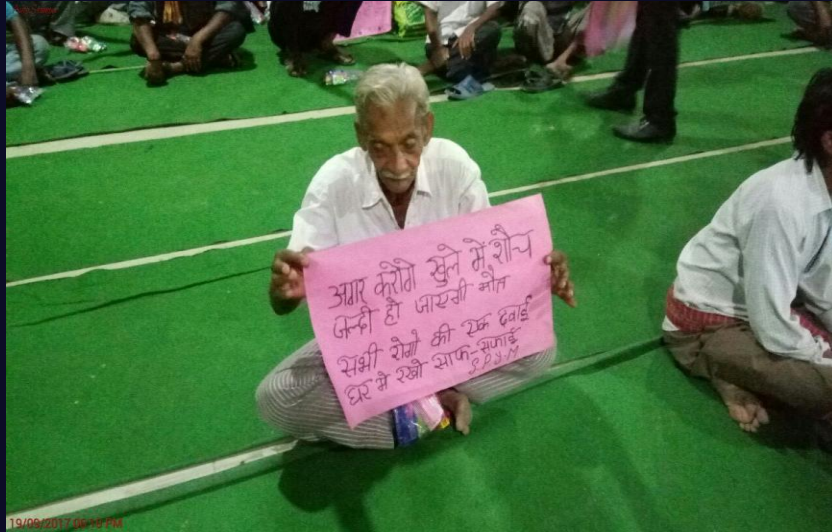 अगर करोगे खुले में शौच
जल्दी हो जाएगी मौत
सभी रोगो की एक दवाई
घर मे रखो साफ-सफाई
S.P.Y.M
19/09/2017 06:19 PM